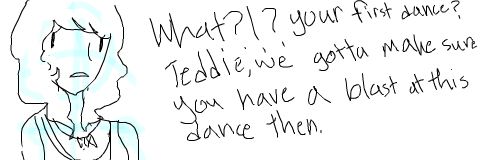 What?!? your first dance?
Teddie, we gotta make sure
you have a blast at this
dance then.